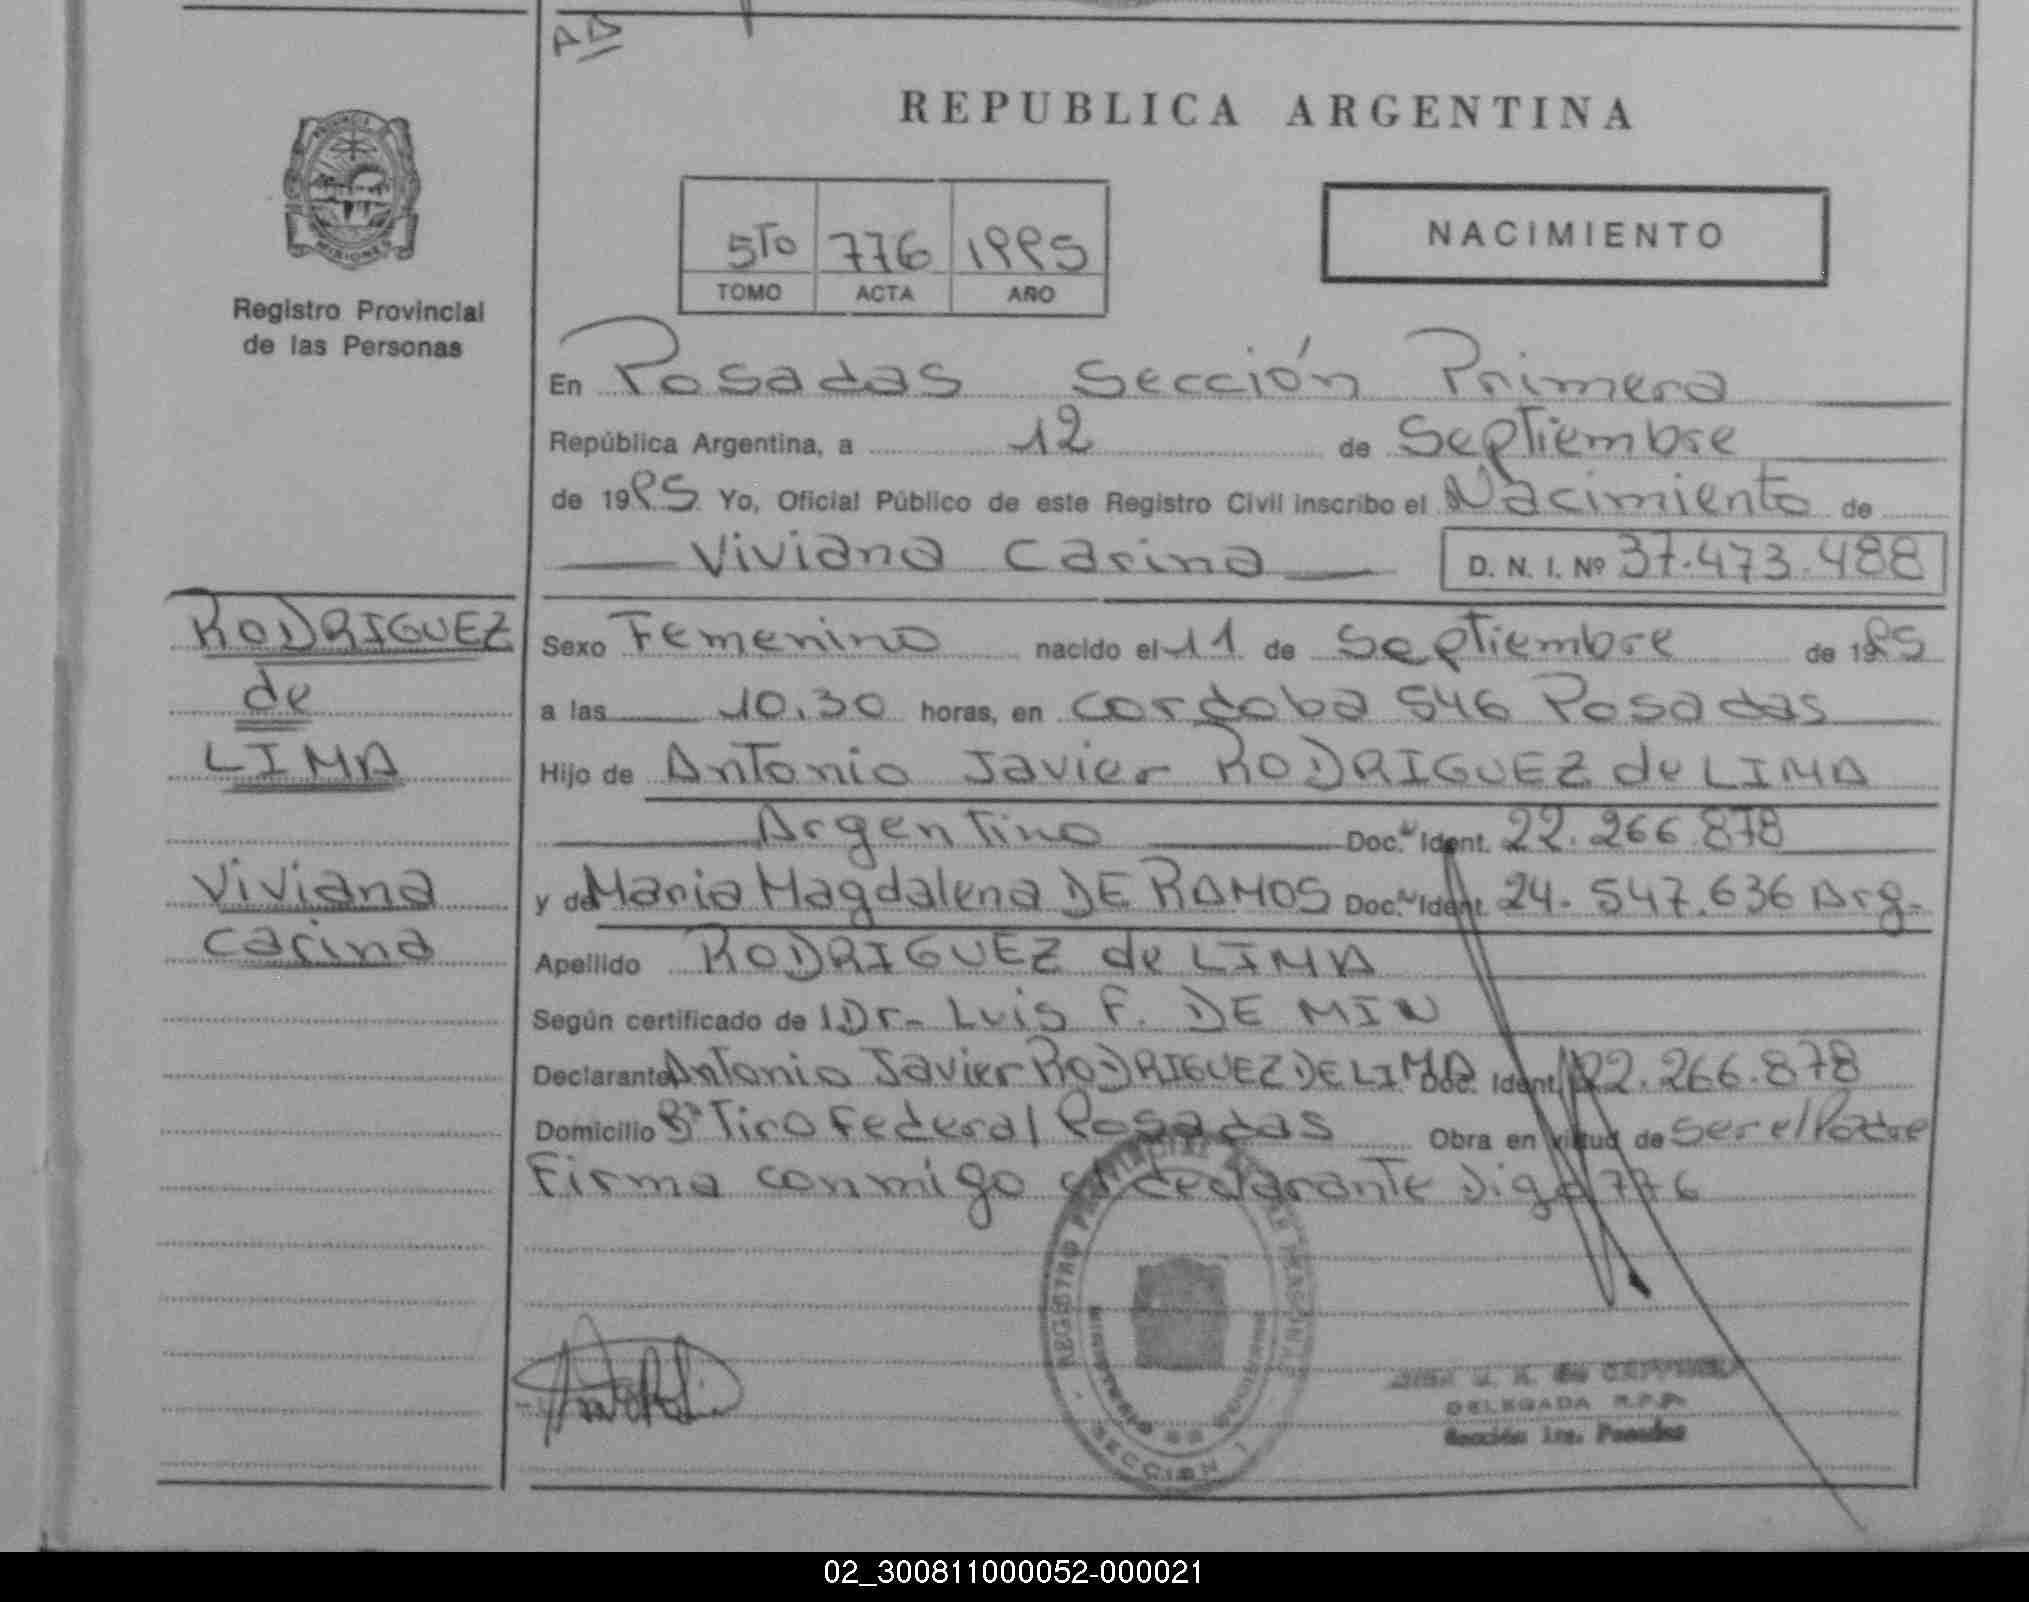 AD
REPUBLICA ARGENTINA
PROVINCIA
MISIONES
5To 776 1995
TOMO ACTA AÑO
NACIMIENTO
Registro Provincial
de las Personas
En Posadas Sección Primera
República Argentina, a 12 de Septiembre
de 1995 Yo, Oficial Público de este Registro Civil inscribo el Nacimiento de
Viviana Carina D. N. I. Nº 37.473.488
RODRIGUEZ
de
LIMA
Viviana
Carina
Sexo Femenino nacido el 11 de Septiembre de 1995
a las 10.30 horas, en Cordoba 546 Posadas
Hijo de Antonio Javier RODRIGUEZ de LIMA
Argentino Doc. Ident. 22.266.878
y de Maria Magdalena DE RAMOS Doc. Ident. 24.547.636 Arg.
Apellido RODRIGUEZ de LIMA
Según certificado de Dr. Luis F. DE MIN
Declarante Antonio Javier RODRIGUEZ DE LIMA Doc. Ident. 22.266.878
Domicilio Bº Tiro Federal Posadas Obra en virtud de ser el Padre
Firma conmigo el declarante Digo 776
REGISTRO PROVINCIAL DE LAS PERSONAS
MINISTERIO DE GOBIERNO
SECCION 1
DELEGADA R.P.P.
Sección 1ra. Posadas
02_300811000052-000021